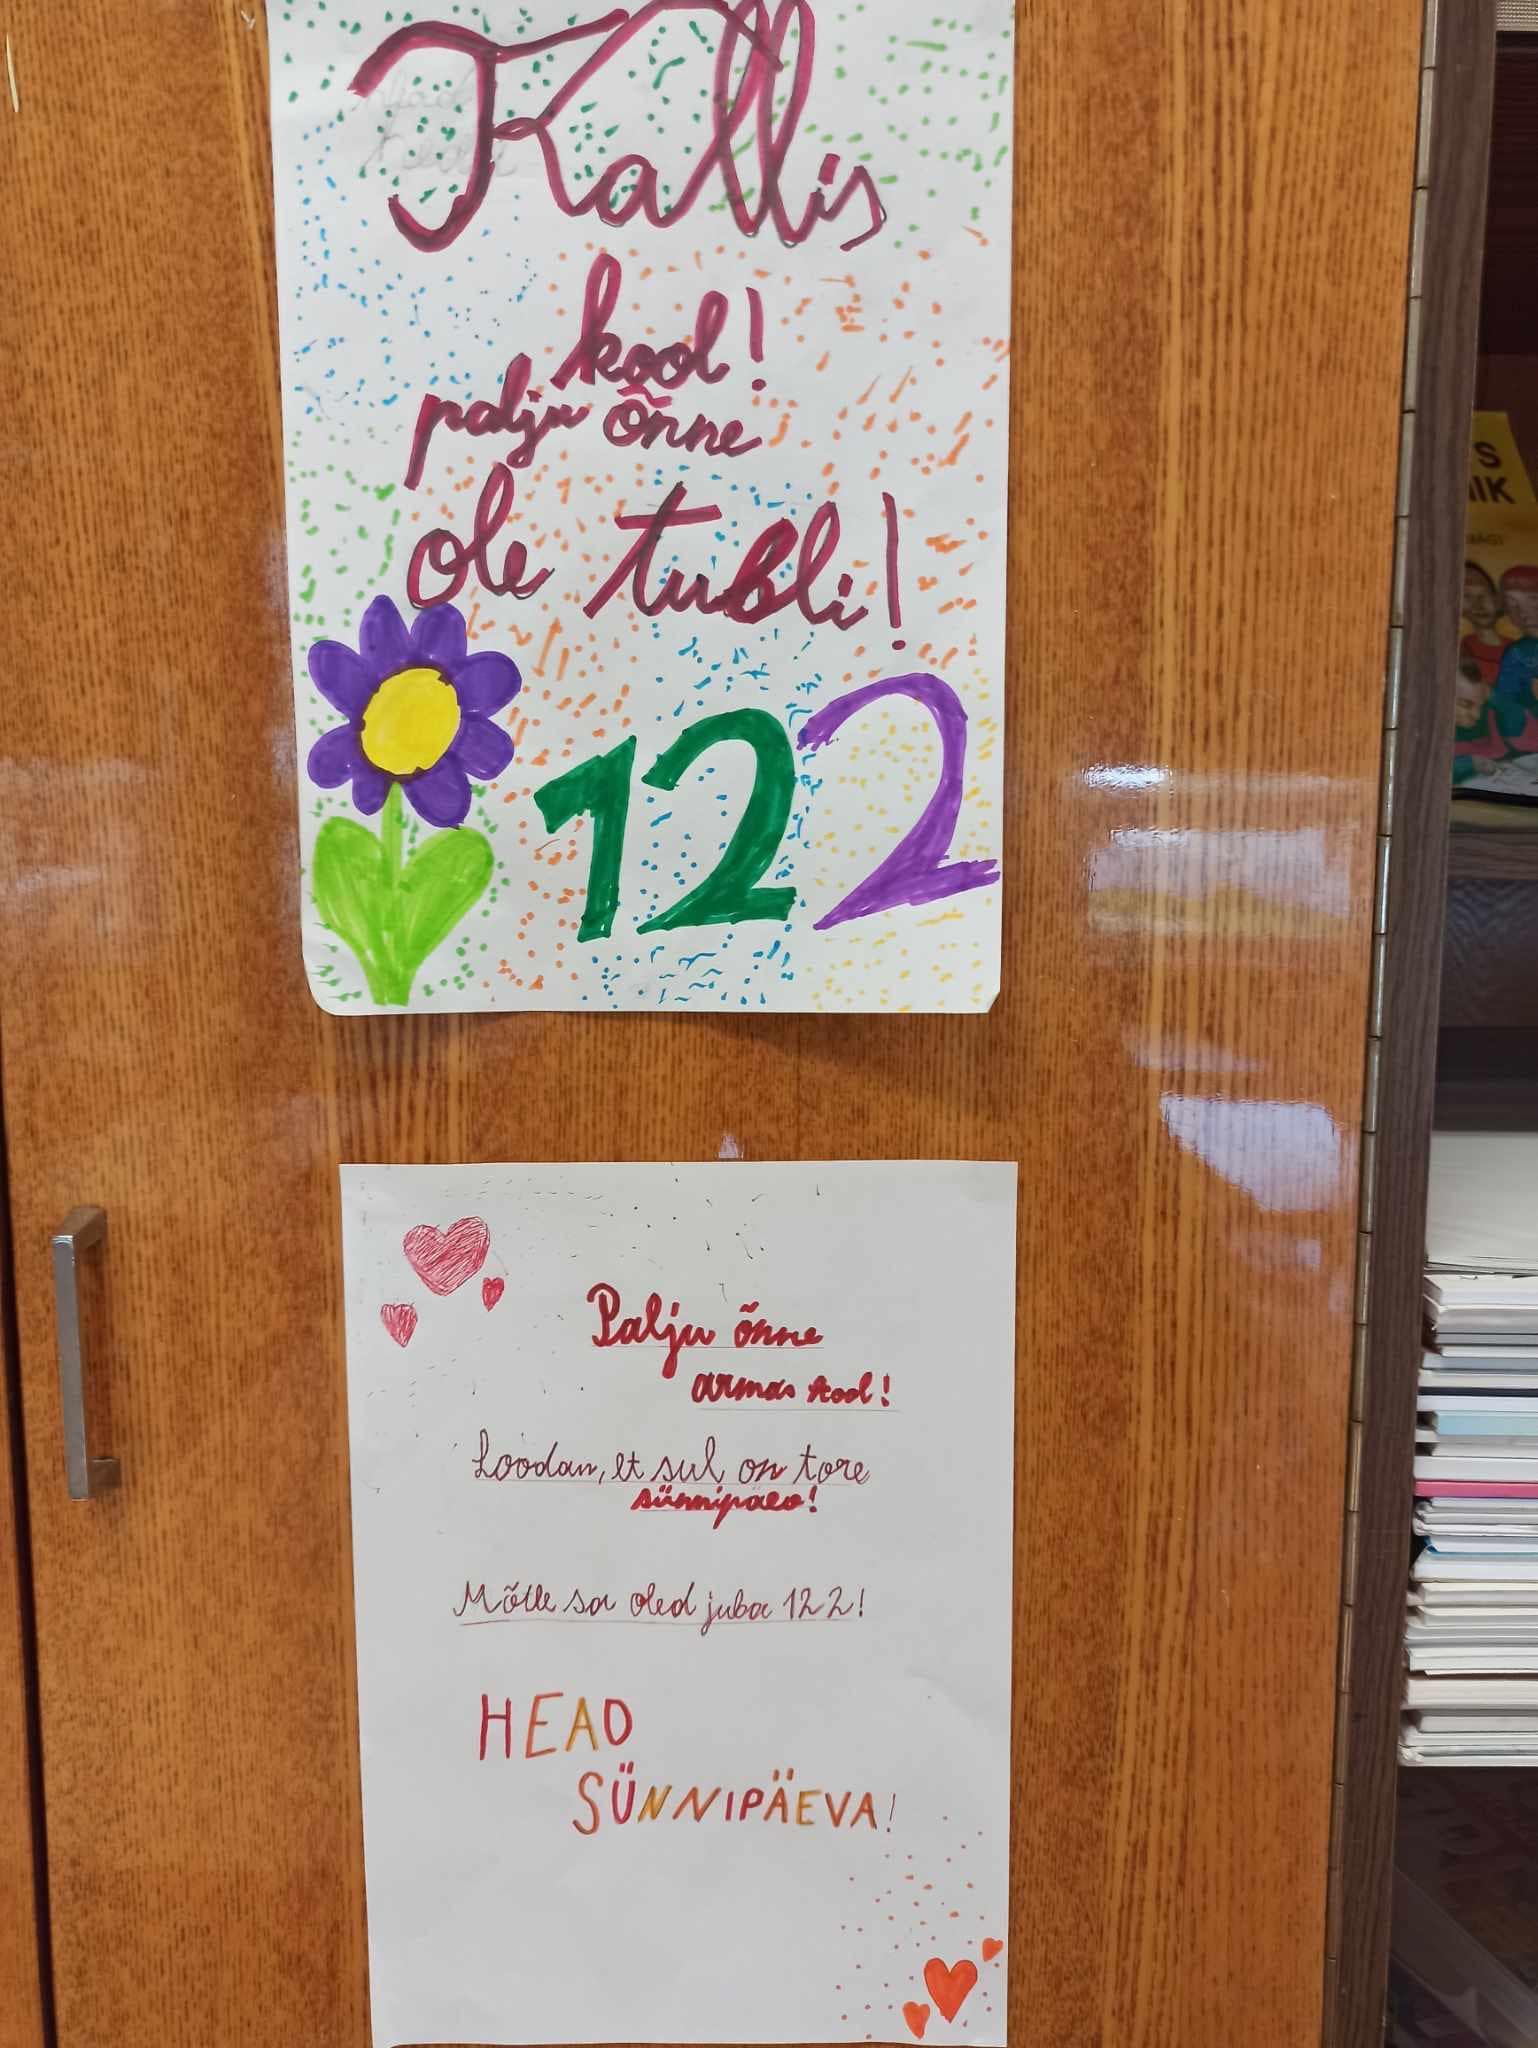 Kallis
kool!
palju õnne
ole tubli!
122
Palju õnne
armas kool!
Loodan, et sul on tore
sünnipäev!
Mõtle sa oled juba 122!
HEAD
SÜNNIPÄEVA!
S